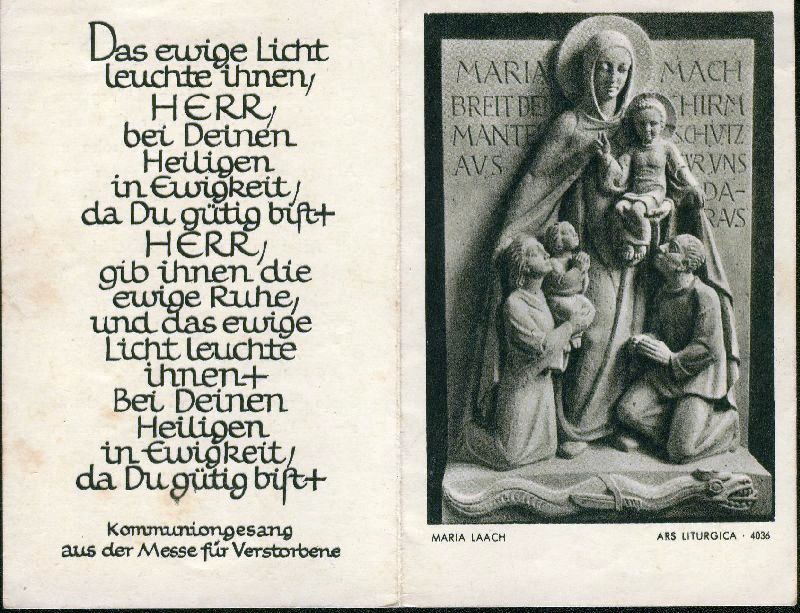 Das ewige Licht
leuchte ihnen,
HERR,
bei Deinen
Heiligen
in Ewigkeit,
da Du gütig bist+
HERR,
gib ihnen die
ewige Ruhe,
und das ewige
Licht leuchte
ihnen+
Bei Deinen
Heiligen
in Ewigkeit,
da Du gütig bist+
Kommuniongesang
aus der Messe für Verstorbene
MARIA MACH
BREIT DEN
MANTEL
AVS VNS
DA-
RAVS
MARIA LAACH
ARS LITURGICA · 4036